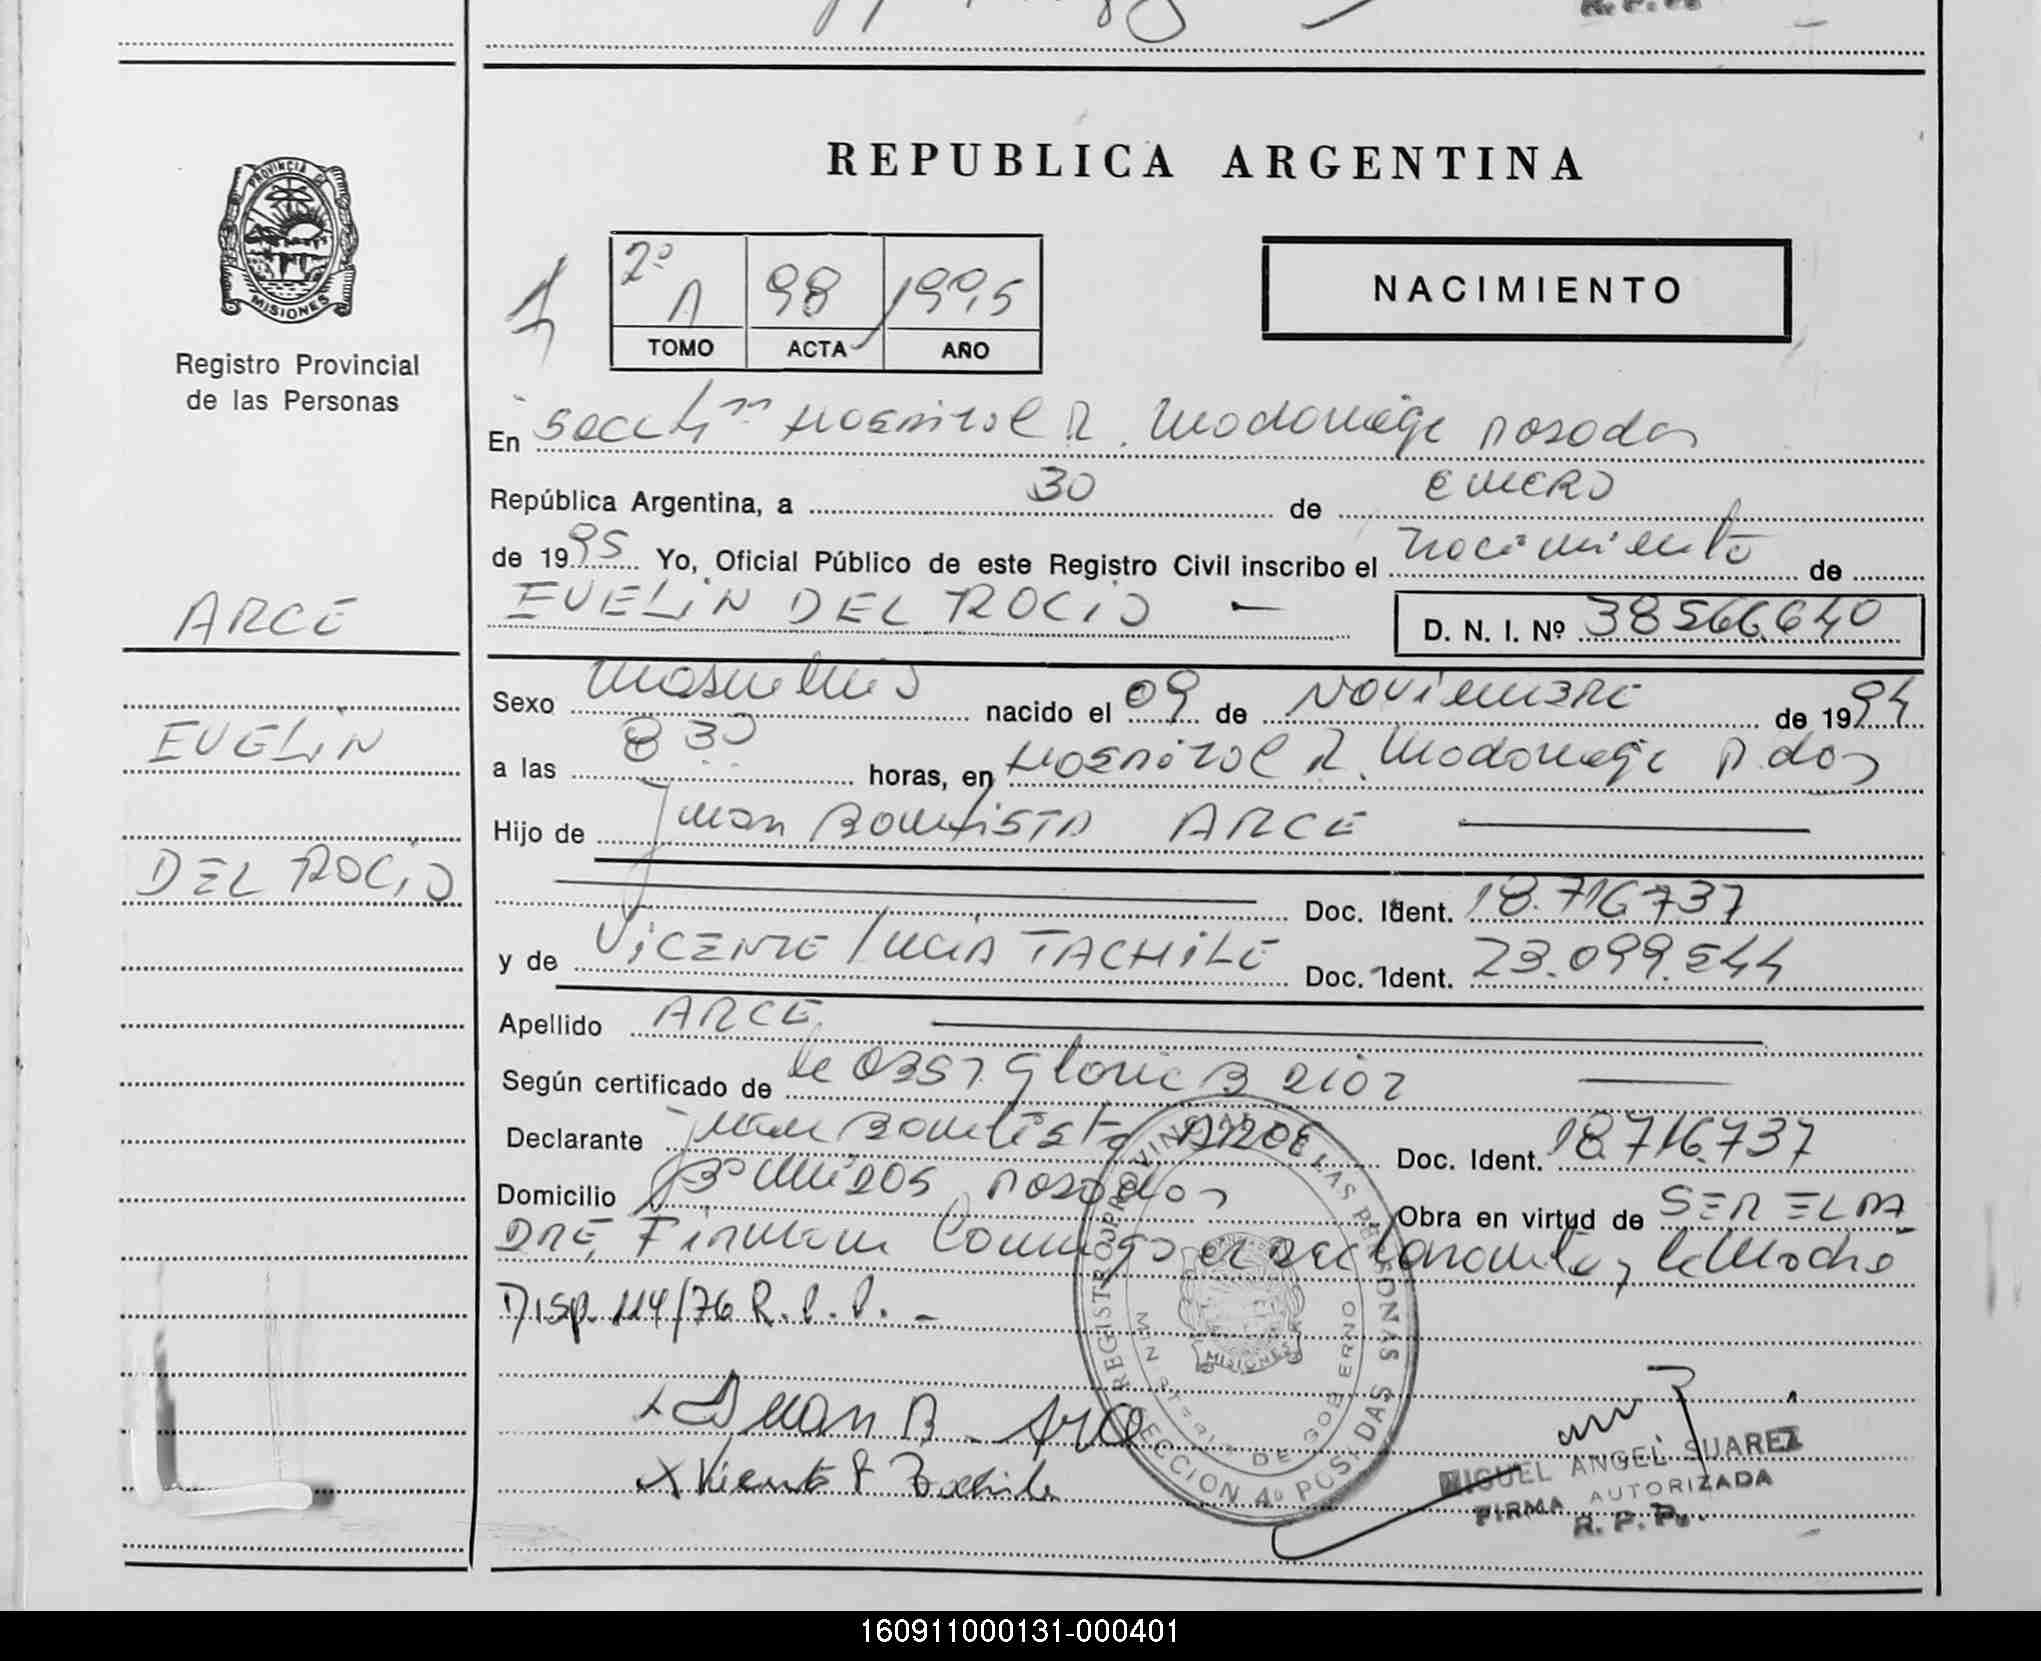 R. P. P.
PROVINCIA DE
MISIONES
Registro Provincial
de las Personas
REPUBLICA ARGENTINA
2º A 98 1995
TOMO ACTA AÑO
NACIMIENTO
En Secc 4ta Hospital R. Madariaga Posadas
República Argentina, a 30 de ENERO
de 1995 Yo, Oficial Público de este Registro Civil inscribo el nacimiento de
EVELIN DEL ROCIO — D. N. I. Nº 38566.640
ARCE
EVELIN
DEL ROCIO
Sexo masculino nacido el 09 de NOVIEMBRE de 1994
a las 8 30 horas, en Hospital R. Madariaga P.das
Hijo de Juan Bautista ARCE
Doc. Ident. 18.716.737
y de VICENTE LUCIA TACHILE Doc. Ident. 23.099.544
Apellido ARCE
Según certificado de la Obst. Gloria B
Declarante Juan Bautista ARCE Doc. Ident. 18.716.737
Domicilio Bº Posadas Obra en virtud de SER EL PA
DRE, Firman Conmigo el declarante y la Madre
Disp. 114/76 R.P.P. -
x Juan B. Arce
x Vicente L Tachile
REGISTRO PROVINCIAL DE LAS PERSONAS
SECCION 4º POSADAS
MINISTERIO DE GOBIERNO
MISIONES
MIGUEL ANGEL SUAREZ
FIRMA AUTORIZADA
R. P. P.
160911000131-000401